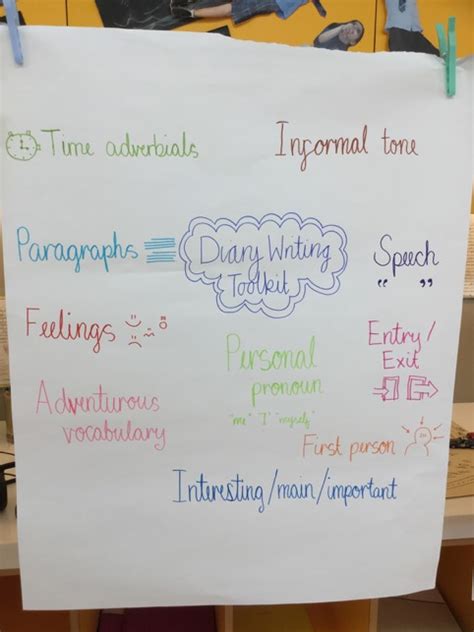 Time adverbials
Informal tone
Diary Writing
Toolkit
Paragraphs
Speech
“ ”
Feelings
Entry/
Exit
Personal
pronoun
"me" "I" "myself"
Adventurous
vocabulary
First person
Interesting/main/important